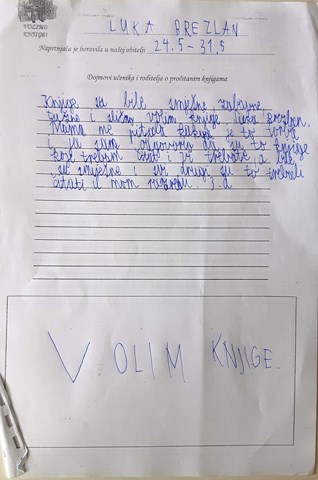 VOLIMO
KNJIGE!
LUKA BREZLAN
Naprtnjača je boravila u našoj obitelji 24.5-31.5
Dojmovi učenika i roditelja o pročitanim knjigama
Knjige su bile smješne zabavne
tužne i volim knjige Luka Brezlan.
Mama me pitala kakva je to torba
i ja sam odgovorio da su to knjige
koje trebam čitat i vi trebate, a bile
su smješne i svi drugi su to trebali
čitati u mom razredu 3.a
VOLIM KNJIGE.